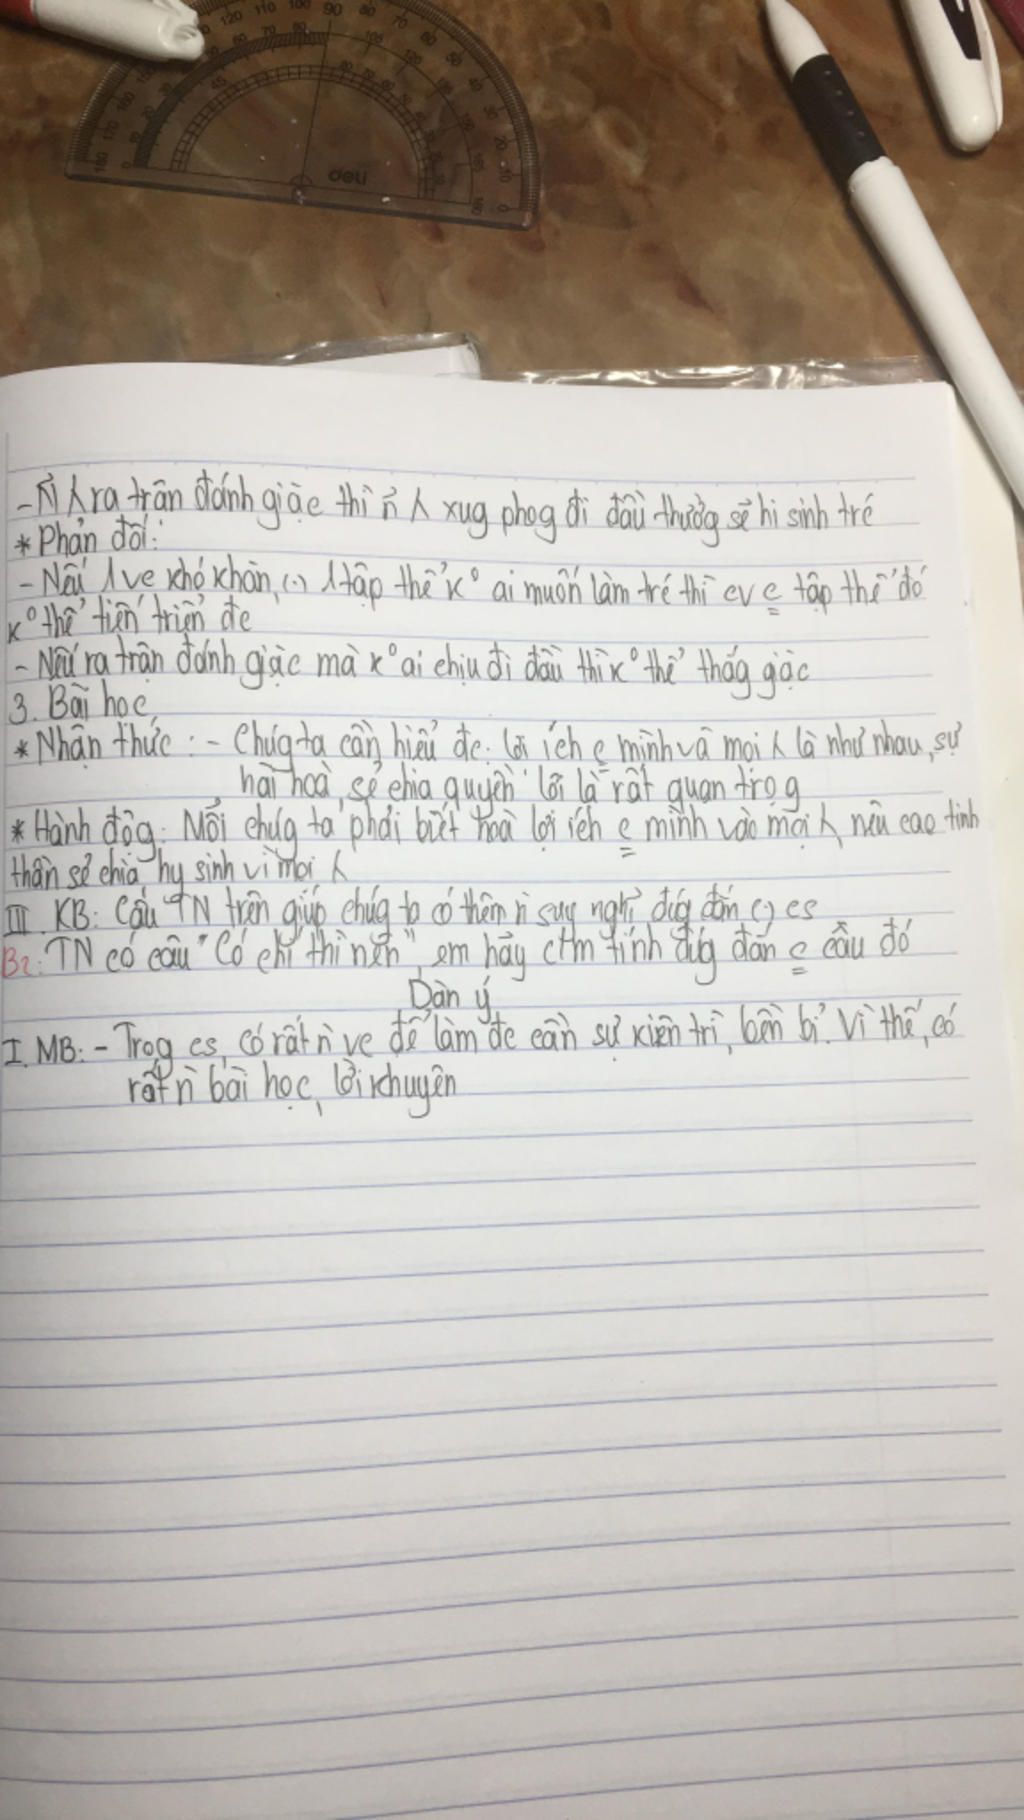 deli
- Ñ λ ra trận đánh giặc thì ñ λ xug phog đi đầu thưởg sẽ hi sinh trc
* Phản đối:
- Nếu 1 vc khó khăn, (.) 1 tập thể k° ai muốn làm trc thì cv c tập thể đó
k° thể tiến triển đc
- Nếu ra trận đánh giặc mà k° ai chịu đi đầu thì k° thể thắg giặc
3. Bài học
* Nhận thức: - Chúg ta cần hiểu đc: lợi ích c mình và mọi λ là như nhau, sự
hài hoà, sẻ chia quyền lợi là rất quan trọg
* Hành độg: Mỗi chúg ta phải biết hoà lợi ích c mình vào mọi λ, nêu cao tinh
thần sẻ chia hy sinh vì mọi λ
III. KB: Câu TN trên giúp chúg ta có thêm ñ suy nghĩ đúg đắn (.) cs
B2: TN có câu "Có chí thì nên" em hãy ctm tính đúg đắn c câu đó
Dàn ý
I. MB: - Trog cs, có rất ñ vc để làm đc cần sự kiên trì, bền bỉ. Vì thế, có
rất ñ bài học, lời khuyên